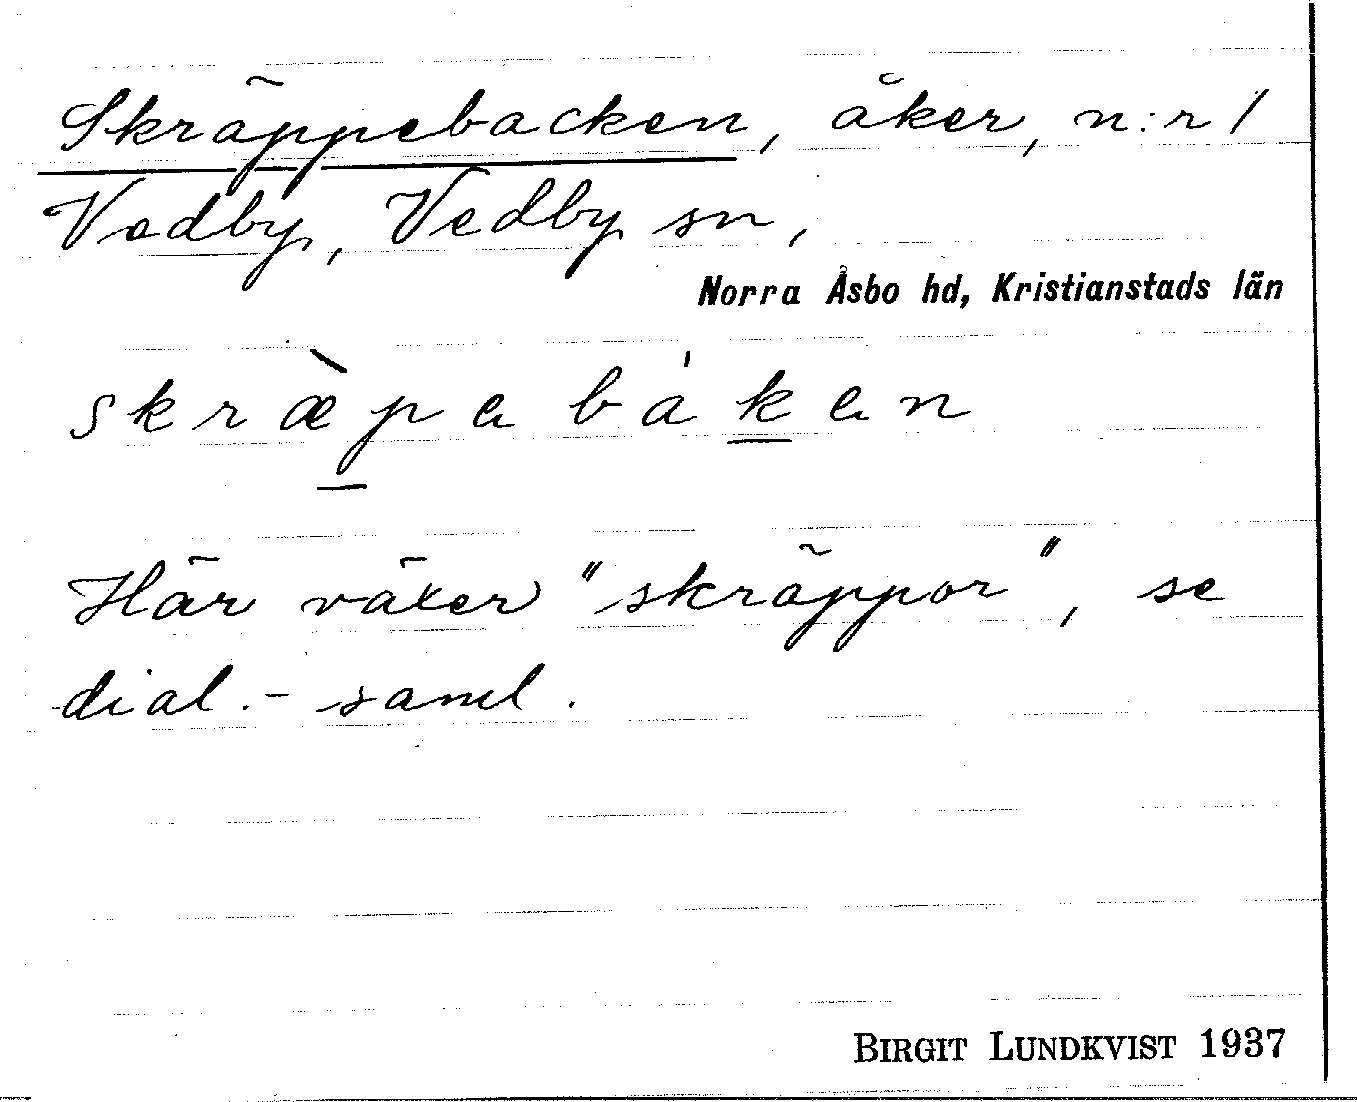 Skräppebacken, åker, n:r 1
Vedby, Vedby sn,
Norra Åsbo hd, Kristianstads län
skræ̀pebáken
Här växer "skräppor", se
dial.-saml.
BIRGIT LUNDKVIST 1937